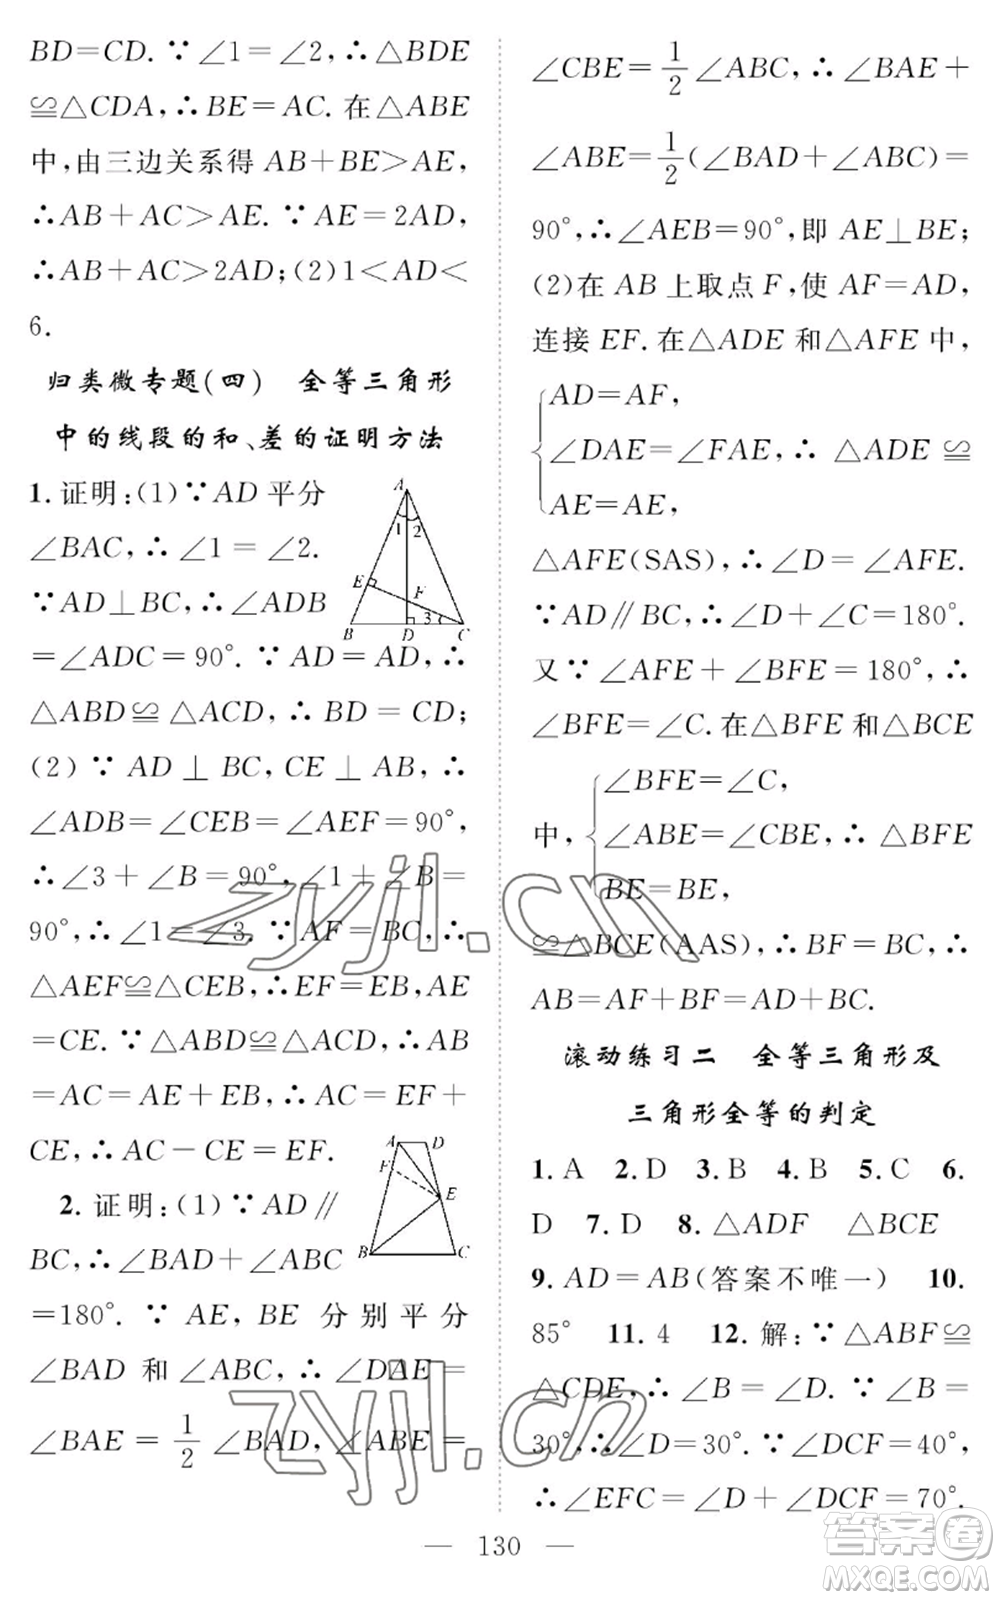 BD=CD. ∵∠1=∠2, ∴△BDE
≌△CDA, ∴BE=AC. 在△ABE
中, 由三边关系得 AB+BE>AE,
∴AB+AC>AE. ∵AE=2AD,
∴AB+AC>2AD;(2)1<AD<
6.
归类微专题(四) 全等三角形
中的线段的和、差的证明方法
1. 证明:(1)∵AD 平分
∠BAC, ∴∠1=∠2.
∵AD⊥BC, ∴∠ADB
=∠ADC=90°. ∵AD=AD, ∴
△ABD≌△ACD, ∴BD=CD;
(2) ∵ AD ⊥ BC, CE ⊥ AB, ∴
∠ADB=∠CEB=∠AEF=90°,
∴∠3+∠B=90°, ∠1+∠B=
90°, ∴∠1=∠3. ∵AF=BC, ∴
△AEF≌△CEB, ∴EF=EB, AE
=CE. ∵△ABD≌△ACD, ∴AB
=AC=AE+EB, ∴AC=EF+
CE, ∴AC-CE=EF.
2. 证明:(1)∵AD∥
BC, ∴∠BAD+∠ABC
=180°. ∵ AE, BE 分别平分
∠BAD 和∠ABC, ∴∠DAE=
∠BAE = 1/2 ∠BAD, ∠ABE=
A
1 2
E F
3
B D C
A D
F
E
B C
∠CBE=1/2∠ABC, ∴∠BAE+
∠ABE=1/2(∠BAD+∠ABC)=
90°, ∴∠AEB=90°, 即 AE⊥BE;
(2)在 AB 上取点 F, 使 AF=AD,
连接 EF. 在△ADE 和△AFE 中,
AD=AF,
∠DAE=∠FAE, ∴ △ADE ≌
AE=AE,
△AFE(SAS), ∴∠D=∠AFE.
∵AD∥BC, ∴∠D+∠C=180°.
又∵∠AFE+∠BFE=180°, ∴
∠BFE=∠C. 在△BFE 和△BCE
∠BFE=∠C,
中, ∠ABE=∠CBE, ∴ △BFE
BE=BE,
≌△BCE(AAS), ∴BF=BC, ∴
AB=AF+BF=AD+BC.
滚动练习二 全等三角形及
三角形全等的判定
1. A 2. D 3. B 4. B 5. C 6.
D 7. D 8. △ADF △BCE
9. AD=AB(答案不唯一) 10.
85° 11. 4 12. 解:∵△ABF≌
△CDE, ∴∠B=∠D. ∵∠B=
30°, ∴∠D=30°. ∵∠DCF=40°,
∴∠EFC=∠D+∠DCF=70°.
— 130 —
zyjl.cn
zyjl.cn
答案圈
MXQE.COM